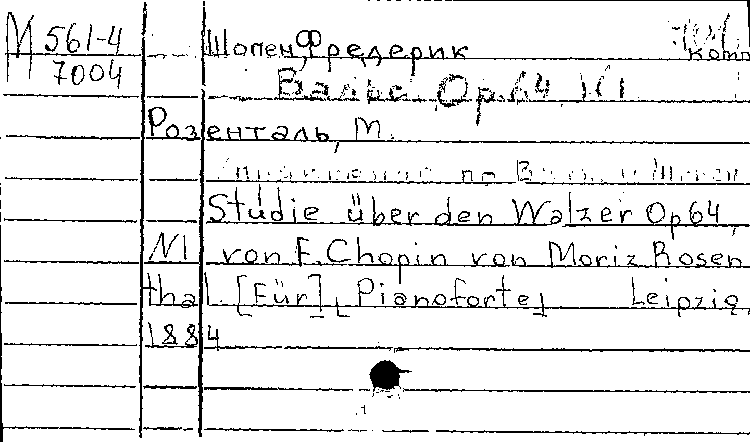 М 561-4 Шопен, Фредерик комп
7004 Вальс Op.64 №1
Розенталь, М.
по
Studie über den Walzer Op64,
N1 von F. Chopin von Moriz Rosen
thal. [Für] [Pianoforte] Leipzig,
1884